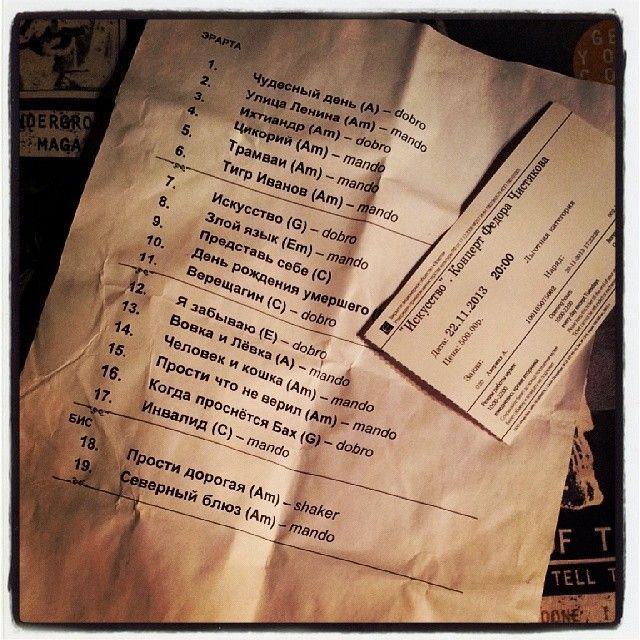 ЭРАРТА
1. Чудесный день (A) – dobro
2. Улица Ленина (Am) – mando
3. Ихтиандр (Am) – dobro
4. Цикорий (Am) – mando
5. Трамваи (Am) – mando
6. Тигр Иванов (Am) – mando
7. Искусство (G) – dobro
8. Злой язык (Em) – mando
9. Представь себе (C)
10. День рождения умершего
11. Верещагин (C) – dobro
12. Я забываю (E) – dobro
13. Вовка и Лёвка (A) – mando
14. Человек и кошка (Am) – mando
15. Прости что не верил (Am) – mando
16. Когда проснётся Бах (G) – dobro
17. Инвалид (C) – mando
БИС
18. Прости дорогая (Am) – shaker
19. Северный блюз (Am) – mando
"Искусство". Концерт Федора Чистякова
Дата: 22.11.2013 20:00
Цена: 500.00р.
Льготная категория
Заказ:
Наряд:
NDERGRO
MAGA
GE
YO
F T
TELL T
DONE, I